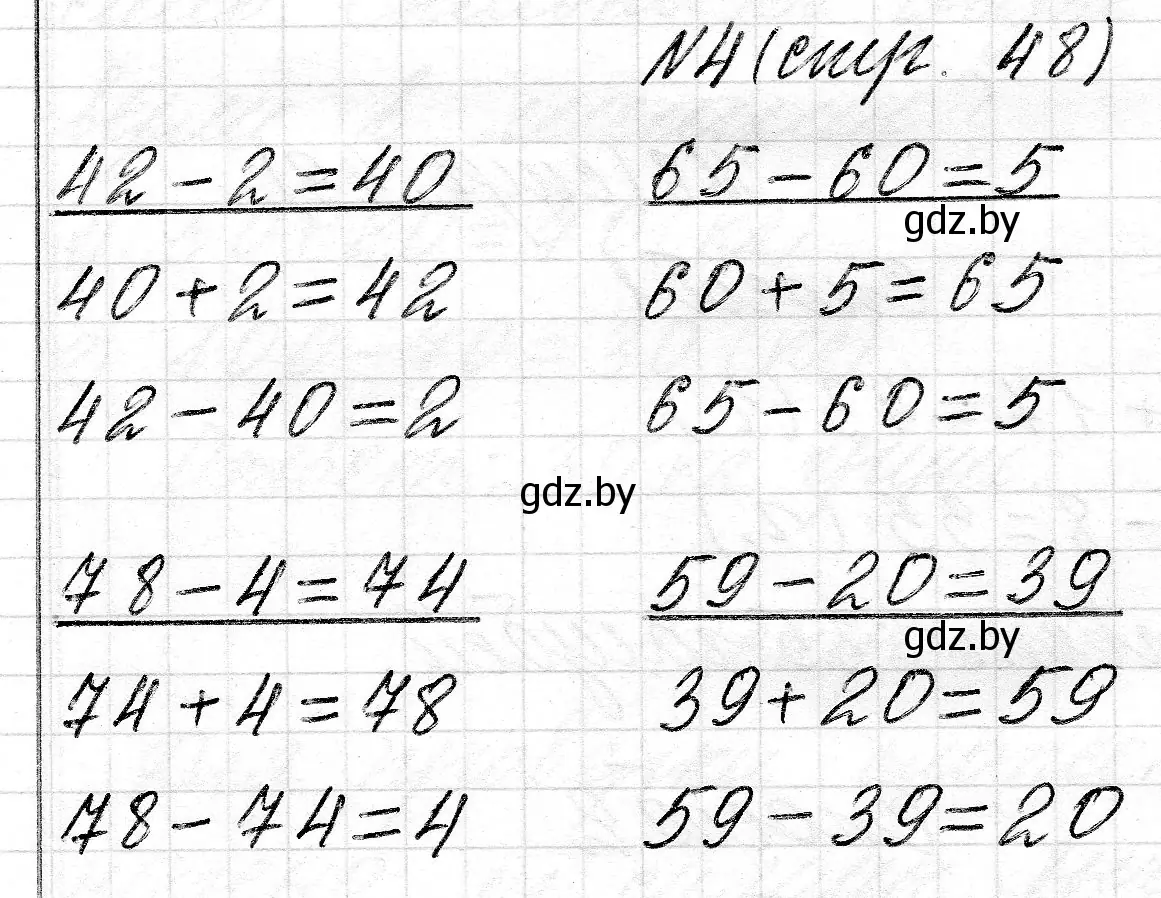 N4 (стр. 48)
42 - 2 = 40
65 - 60 = 5
gdz.by
40 + 2 = 42
60 + 5 = 65
42 - 40 = 2
65 - 60 = 5
gdz.by
78 - 4 = 74
59 - 20 = 39
gdz.by
74 + 4 = 78
39 + 20 = 59
78 - 74 = 4
59 - 39 = 20